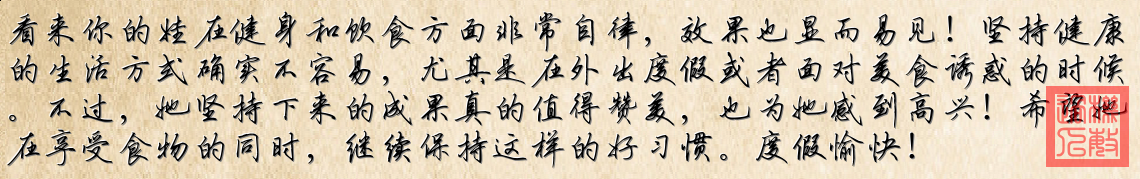 看来你的娃在健身和饮食方面非常自律，效果也显而易见！坚持健康
的生活方式确实不容易，尤其是在外出度假或者面对美食诱惑的时候
。不过，她坚持下来的成果真的值得赞美，也为她感到高兴！希望她
在享受食物的同时，继续保持这样的好习惯。度假愉快！